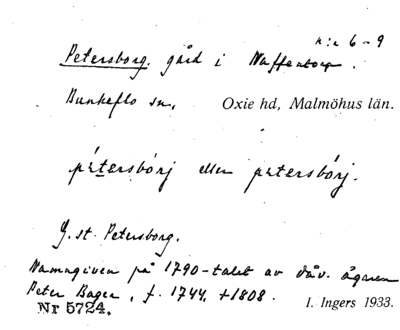 n:r 6-9
Petersborg. gård i Naffentorp.
Bunkeflo sn, Oxie hd, Malmöhus län.
pétersbórj eller petersbórj.
G. st. Petersborg.
Namngiven på 1790-talet av dåv. ägaren
Peter Bager, f. 1744, +1808.
Nr 5724. I. Ingers 1933.